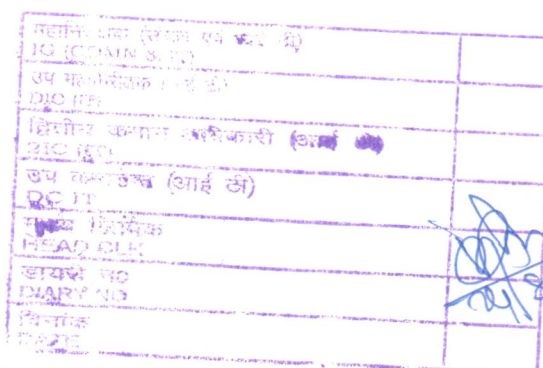 महानिरीक्षक (संचार एवं आई टी)
IG (COMN & IT)
उप महानिरीक्षक (आई टी)
DIG (IT)
द्वितीय कमान अधिकारी (आई टी)
2IC (IT)
उप कमाण्डेन्ट (आई टी)
DC IT
लिपिक
HEAD CLK
डायरी नं०
DIARY NO
दिनांक
DATE